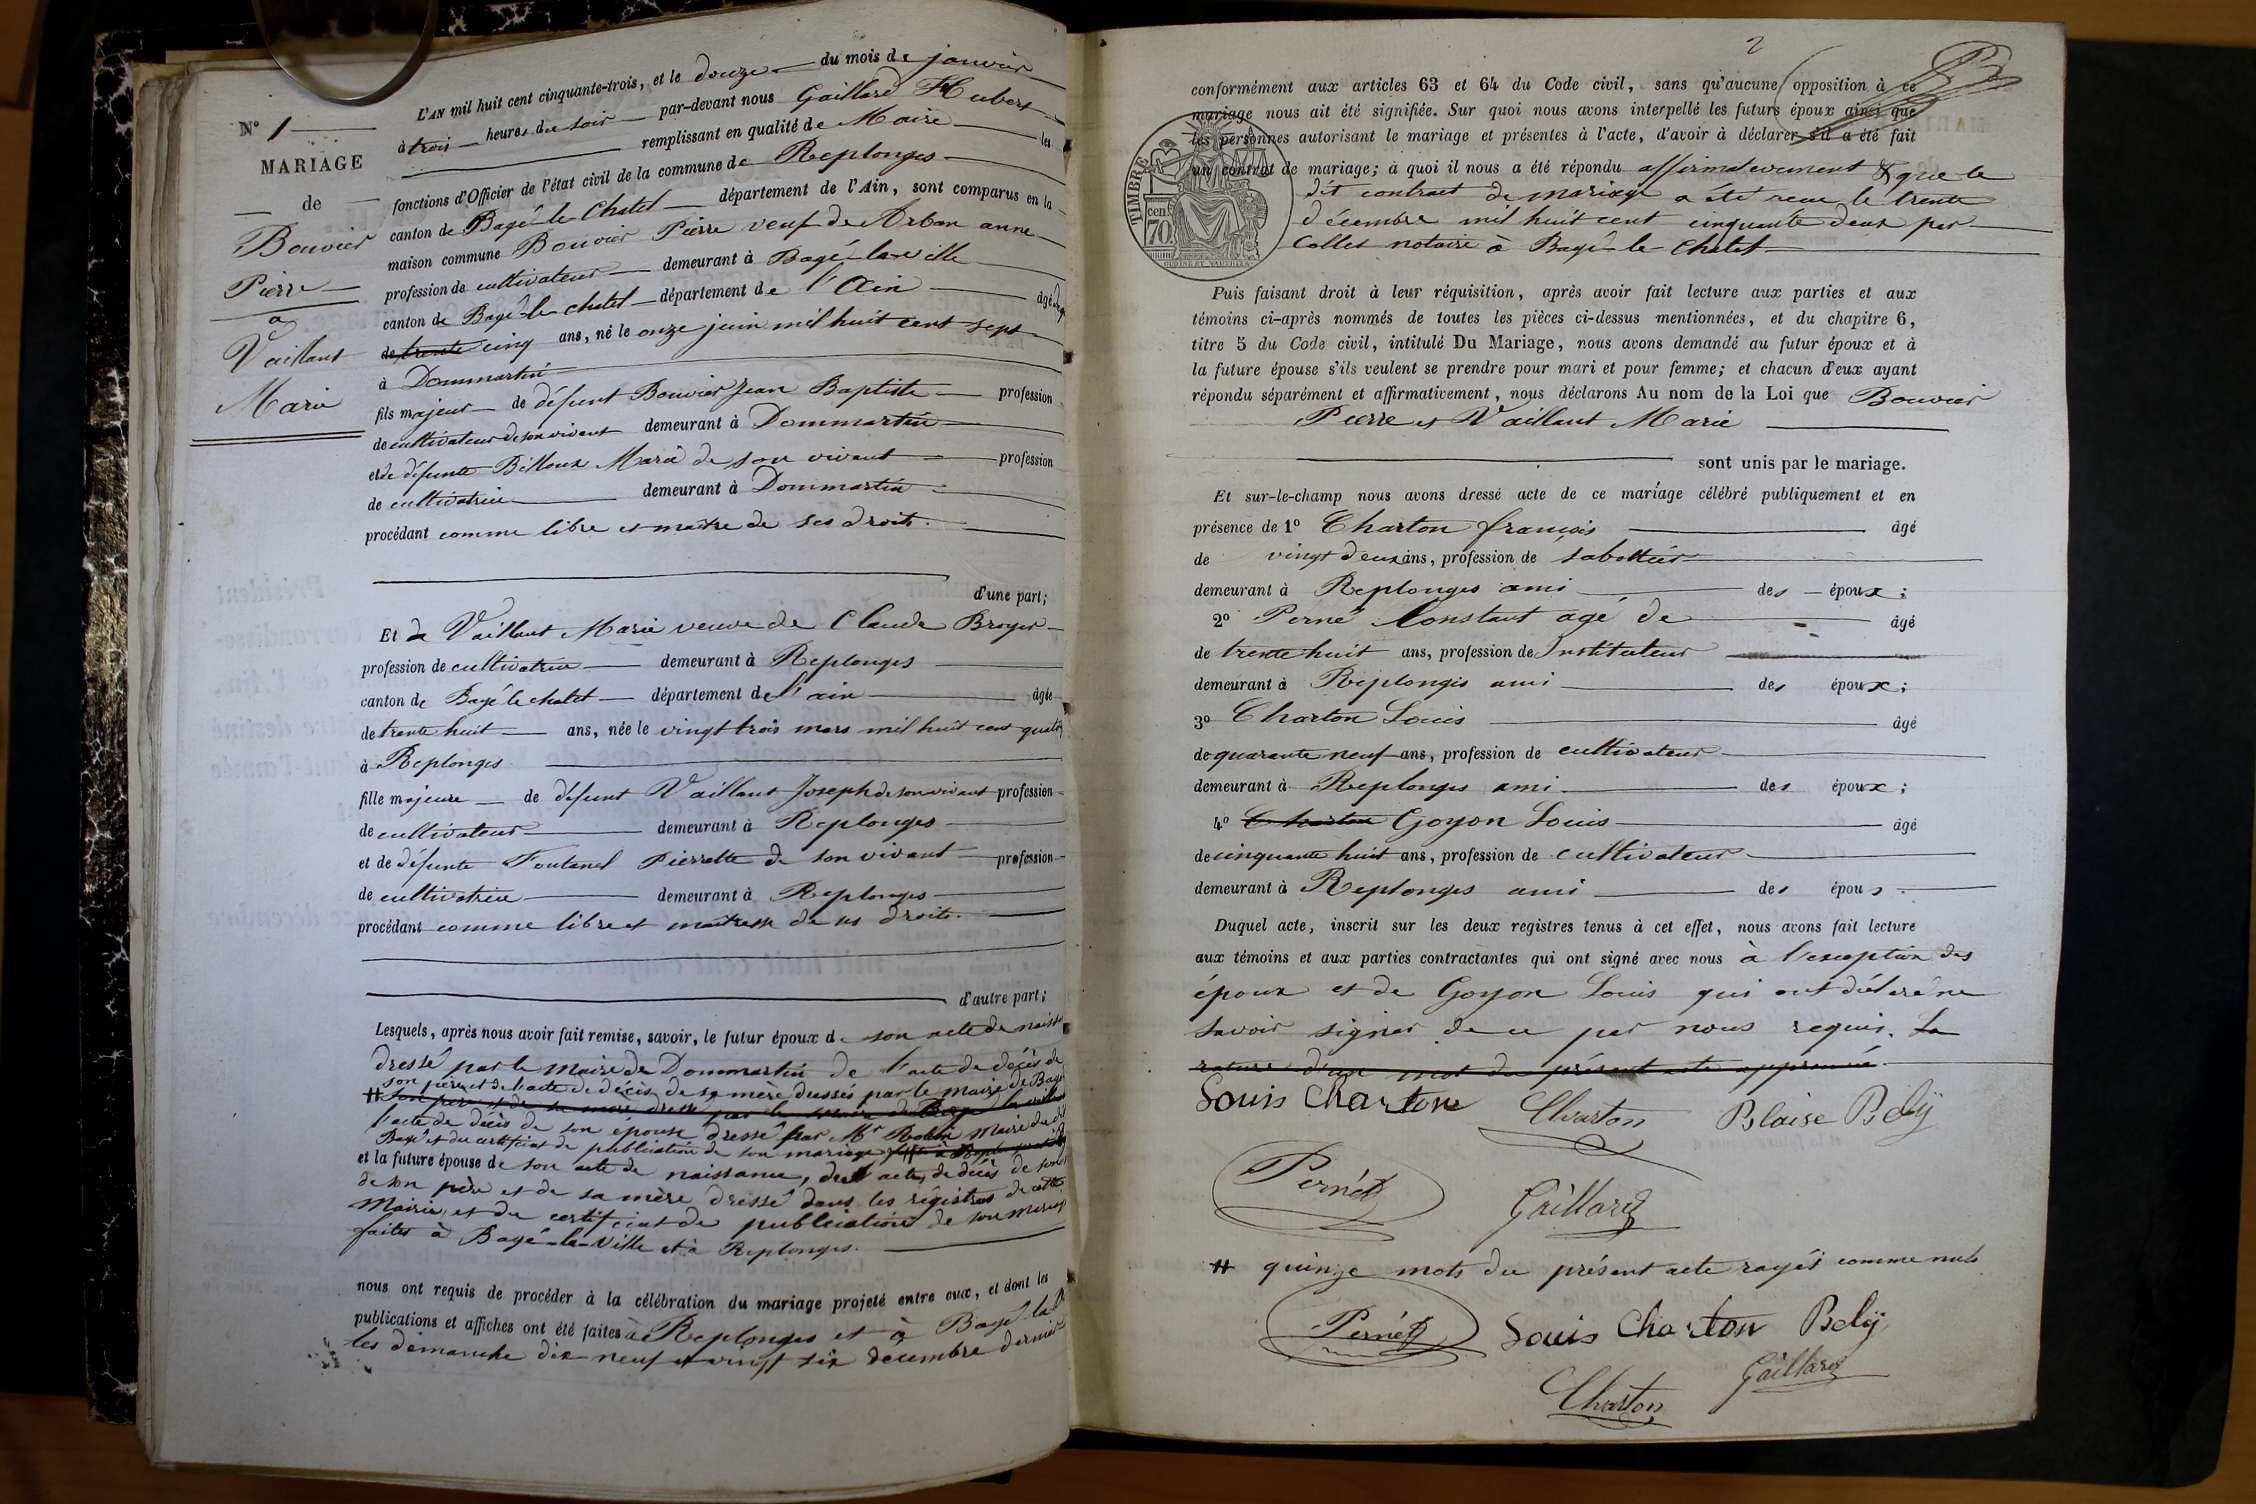 N° 1
MARIAGE
de
Bouvier
Pierre
a
Vaillant
Marie
L'AN mil huit cent cinquante-trois, et le douze du mois de janvier
à trois heures du soir par-devant nous Gaillard Hubert
remplissant en qualité de Maire les
fonctions d'Officier de l'état civil de la commune de Replonges
canton de Bagé-le-Chatel département de l'Ain, sont comparus en la
maison commune Bouvier Pierre veuf de Arban anne
profession de cultivateur demeurant à Bagé-la-ville
canton de Bagé-le-chatel département de l'Ain âgé
de trente cinq ans, né le onze juin mil huit cent sept
à Dommartin
fils majeur de défunt Bouvier Jean Baptiste profession
de cultivateur de son vivant demeurant à Dommartin
et de défunte Billoux Marie de son vivant profession
de cultivatrice demeurant à Dommartin
procédant comme libre et maître de ses droits.
d'une part;
Et de Vaillant Marie veuve de Claude Broyer
profession de cultivatrice demeurant à Replonges
canton de Bagé le chatel département de l'ain âgée
de trente huit ans, née le vingt trois mars mil huit cent
à Replonges
fille majeure de défunt Vaillant Joseph de son vivant profession
de cultivateur demeurant à Replonges
et de défunte Fontanel Pierrette de son vivant profession
de cultivatrice demeurant à Replonges
procédant comme libre et maitresse de ses droits.
d'autre part;
Lesquels, après nous avoir fait remise, savoir, le futur époux de son acte de
dressé par le Maire de Dommartin de l'acte de décès de
son père et de l'acte de décès de sa mère dressés par le Maire de Bagé
son père et de sa mère dressé par le maire de Bagé la ville
l'acte de décès de son epouse dressé par Mr Robin Maire du dit
Bagé et du certificat de publication de son mariage
et la future épouse de son acte de naissance, des actes de décès de
de son père et de sa mère dressé dans les régistres de cette
Mairie, et du certificat de publication de son mariage
faites à Bagé-la-Ville et à Replonges.
nous ont requis de procéder à la célébration du mariage projeté entre eux, et dont les
publications et affiches ont été faites à Replonges et à Bagé la
les dimanche dix neuf et vingt six décembre dernier
2
conformément aux articles 63 et 64 du Code civil, sans qu'aucune opposition à ce
mariage nous ait été signifiée. Sur quoi nous avons interpellé les futurs époux ainsi que
les personnes autorisant le mariage et présentes à l'acte, d'avoir à déclarer s'il a été fait
un contrat de mariage; à quoi il nous a été répondu affirmativement & que le
dit contrat de mariage a été recu le trente
décembre mil huit cent cinquante deux par
Collet notaire à Bagé-le-Chatel
TIMBRE
cen.
70
Puis faisant droit à leur réquisition, après avoir fait lecture aux parties et aux
témoins ci-après nommés de toutes les pièces ci-dessus mentionnées, et du chapitre 6,
titre 5 du Code civil, intitulé Du Mariage, nous avons demandé au futur époux et à
la future épouse s'ils veulent se prendre pour mari et pour femme; et chacun d'eux ayant
répondu séparément et affirmativement, nous déclarons Au nom de la Loi que Bouvier
Pierre et Vaillant Marie
sont unis par le mariage.
Et sur-le-champ nous avons dressé acte de ce mariage célébré publiquement et en
présence de 1° Charton françois âgé
de vingt deux ans, profession de sabottier
demeurant à Replonges ami des époux;
2° Perné Constant agé de âgé
de trente huit ans, profession de Instituteur
demeurant à Replonges ami des époux;
3° Charton Louis âgé
de quarante neuf ans, profession de cultivateur
demeurant à Replonges ami des époux;
4° Charton Goyon Louis âgé
de cinquante huit ans, profession de cultivateur
demeurant à Replonges ami des épous
Duquel acte, inscrit sur les deux registres tenus à cet effet, nous avons fait lecture
aux témoins et aux parties contractantes qui ont signé avec nous à l'exception des
époux et de Goyon Louis qui ont déclaré ne
savoir signer de ce par nous requis. La
rature d'un mot du présent acte approuvée
Louis Charton Charton Blaise Bely
Pernet Gaillard
quinze mots du présent acte rayés comme nuls
Pernet Louis Charton Bely
Charton Gaillard